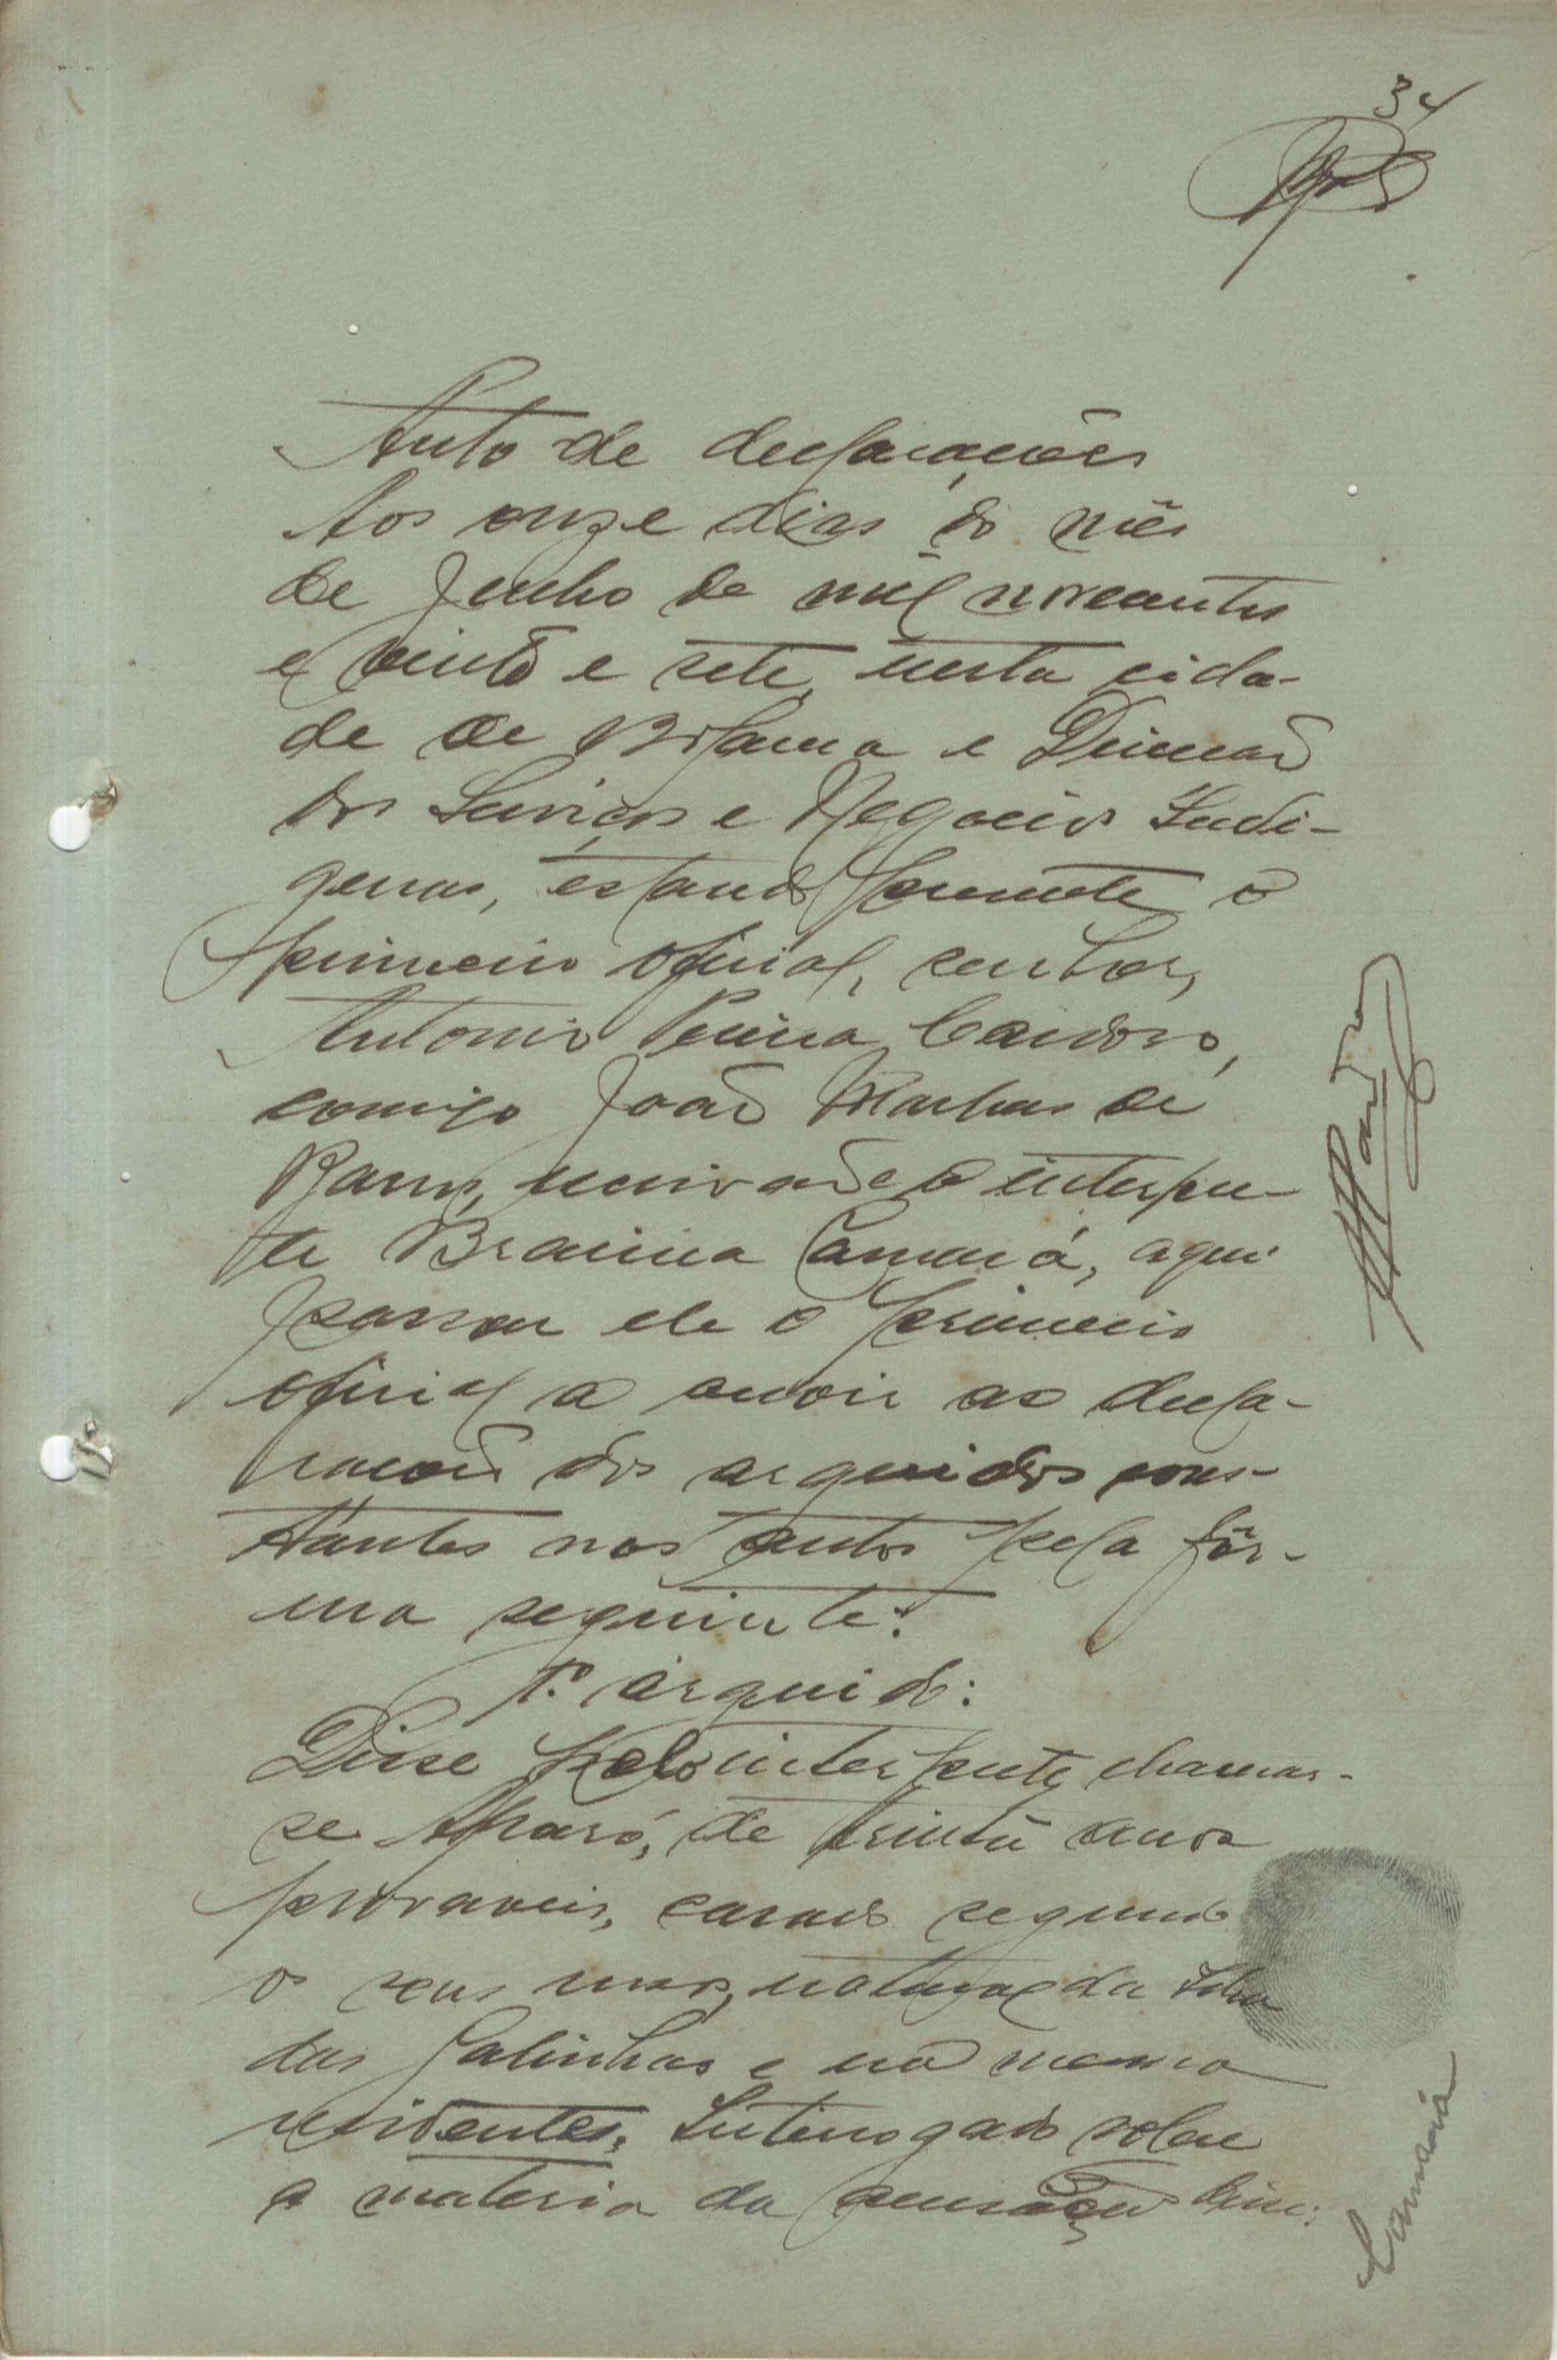 34
Auto de declarações
Aos onze dias do mês
de Junho de mil novecentos
e vinte e sete, nesta cida-
de de Bolama e Direcção
dos Serviços e Negocios Indi-
genas, estando presente o
primeiro oficial, senhor,
Antonio Pereira Cardoso,
comigo João Martins de
Barros, escrivão e o interpre-
te Braima Camará, aqui
passou ele o primeiro
oficial a ouvir as decla-
rações dos arguidos cons-
tantes nos autos pela fór-
ma seguinte:
1.º arguido:
Disse pelo interprete chamar-
se de trinta anos
provaveis, casado segundo
os seus usos, natural da Ilha
das Galinhas e na mesma
residentes. Interrogado sobre
a materia da acusação disse:
Camará